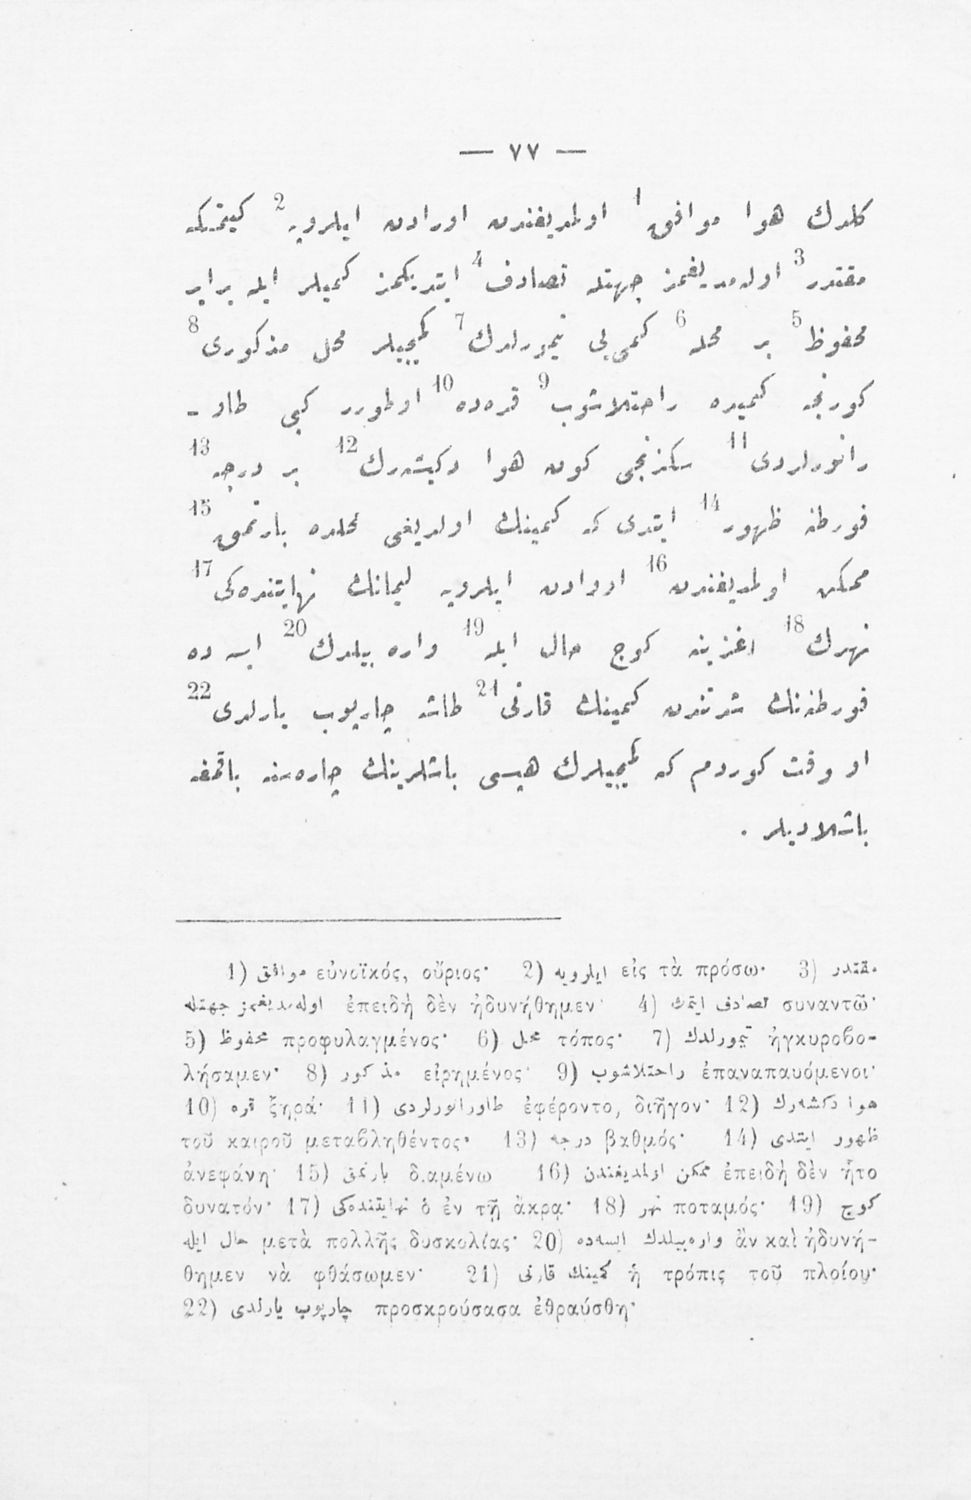 — ٧٧ —
كلدك هوا موافق1 اولمديغندن اورادن ايلرويه2 كيتمكه
مقتدر3 اوله‌مديغمز جهتله تصادف4 ايتديكمز كميلر ايله برابر
محفوظ5 بر محله6 كمى‌يى تيمورلدك7 كميجيلر محل مذكورى8
كورنجه كميده راحتلاشوب9 قره‌ده10 اوطورر كبى طاو -
رانورلردى11 سكزنجى كون هوا دكيشه‌رك12 بر درجه13
فورطنه ظهور14 ايتدى كه كمينك اولديغى محلده بارنمق15
ممكن اولمديغندن16 اورادن ايلرويه ليمانك نهايتنده‌كى17
نهرك18 اغزينه كوج حال ايله19 واره بيلدك20 ايسه ده
فورطنه‌نك شدتندن كمينك قارنى21 طاشه چارپوب يارلدى22
او وقت كوردم كه كميجيلرك هپسى باشلرينك چاره‌سنه باقمغه
باشلاديلر .
1) موافق εὐνοϊκός, οὔριος· 2) ايلرويه εἰς τὰ πρόσω· 3) مقتدر
اوله‌مديغمز جهتله ἐπειδὴ δὲν ἠδυνήθημεν· 4) تصادف ايتمك συναντῶ·
5) محفوظ προφυλαγμένος· 6) محل τόπος· 7) تيمورلدك ἠγκυροβο-
λήσαμεν· 8) مذكور εἰρημένος· 9) راحتلاشوب ἐπαναπαυόμενοι·
10) قره ξηρά· 11) طاورانورلردى ἐφέροντο, διῆγον· 12) هوا دكيشه‌رك
τοῦ καιροῦ μεταβληθέντος· 13) درجه βαθμός· 14) ظهور ايتدى
ἀνεφάνη· 15) بارنمق διαμένω 16) ممكن اولمديغندن ἐπειδὴ δὲν ἦτο
δυνατόν· 17) نهايتنده‌كى ὁ ἐν τῇ ἄκρᾳ· 18) نهر ποταμός· 19) كوج
حال ايله μετὰ πολλῆς δυσκολίας· 20) واره‌بيلدك ايسه‌ده ἂν καὶ ἠδυνή-
θημεν νὰ φθάσωμεν· 21) كمينك قارنى ἡ τρόπις τοῦ πλοίου·
22) چارپوب يارلدى προσκρούσασα ἐθραύσθη·